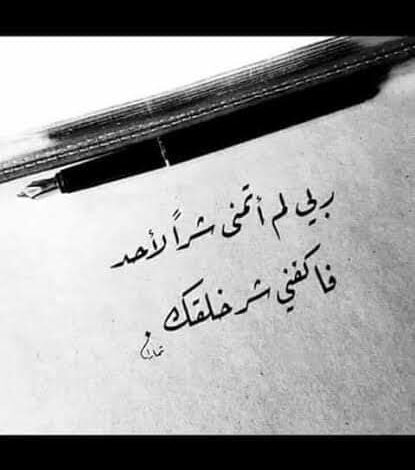 ربي لم أتمنى شراً لأحد
فاكفني شر خلقك .